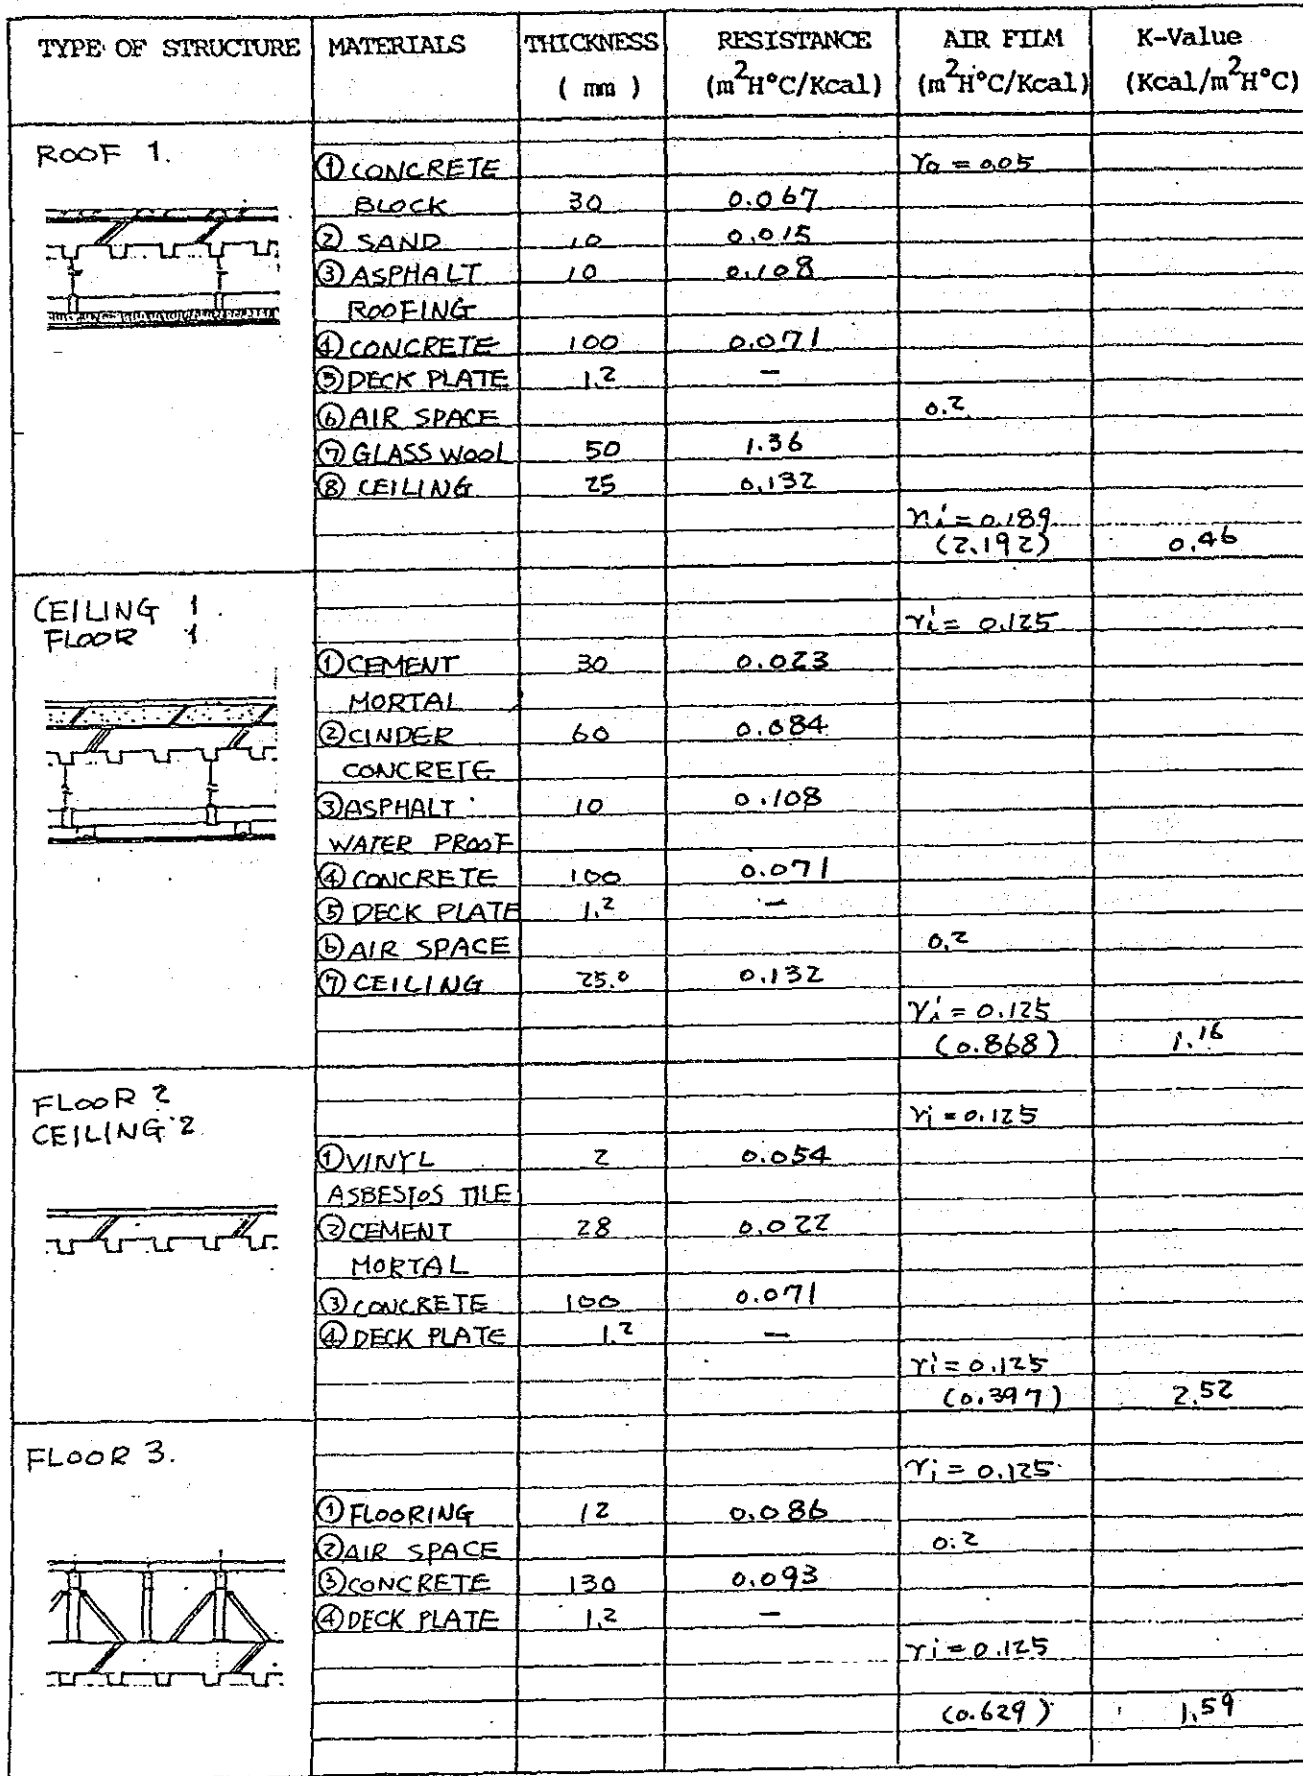 TYPE OF STRUCTURE MATERIALS THICKNESS RESISTANCE AIR FILM K-Value
( mm ) (m²H°C/Kcal) (m²H°C/Kcal) (Kcal/m²H°C)
ROOF 1.
① CONCRETE ro = 0.05
BLOCK 30 0.067
② SAND 10 0.015
③ ASPHALT 10 0.108
ROOFING
④ CONCRETE 100 0.071
⑤ DECK PLATE 1.2 –
⑥ AIR SPACE 0.2
⑦ GLASS WOOL 50 1.36
⑧ CEILING 25 0.132
ri = 0.189
(2.192) 0.46
CEILING 1.
FLOOR 1
ri = 0.125
① CEMENT 30 0.023
MORTAL
② CINDER 60 0.084
CONCRETE
③ ASPHALT 10 0.108
WATER PROOF
④ CONCRETE 100 0.071
⑤ DECK PLATE 1.2 –
⑥ AIR SPACE 0.2
⑦ CEILING 25.0 0.132
ri = 0.125
(0.868) 1.16
FLOOR 2
CEILING 2
ri = 0.125
① VINYL 2 0.054
ASBESTOS TILE
② CEMENT 28 0.022
MORTAL
③ CONCRETE 100 0.071
④ DECK PLATE 1.2 –
ri = 0.125
(0.397) 2.52
FLOOR 3.
ri = 0.125
① FLOORING 12 0.086
② AIR SPACE 0.2
③ CONCRETE 130 0.093
④ DECK PLATE 1.2 –
ri = 0.125
(0.629) 1.59